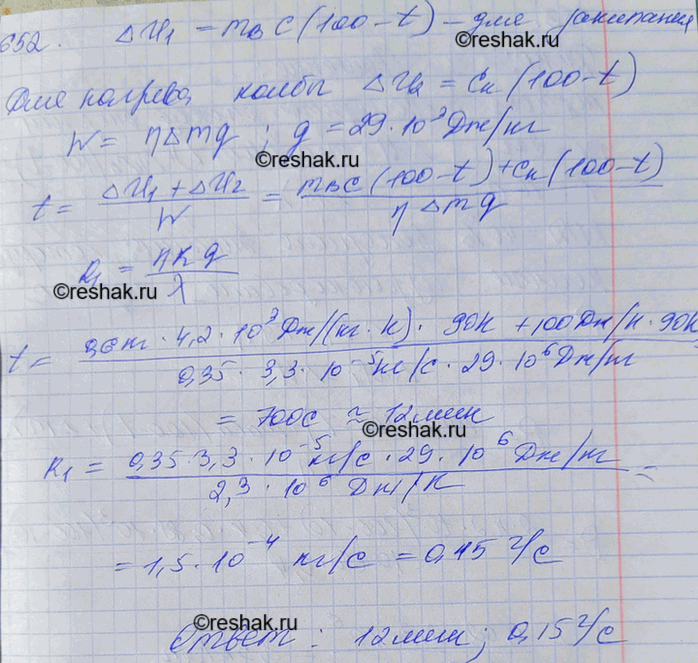 652. ΔU₁ = mвC(100-t) - для закипания
Для нагрева колбы ΔU₂ = Cк(100-t)
W = ηΔmq ; q = 29·10³Дж/кг
©reshak.ru
t = (ΔU₁ + ΔU₂)/W = (mвC(100-t) + Cк(100-t))/(ηΔmq)
©reshak.ru
R₁ = ηkq/λ
©reshak.ru
t = (0,6кг · 4,2 · 10³Дж/(кг·К) · 90К + 100Дж/К · 90К)/(0,35 · 3,3 · 10⁻⁵кг/с · 29 · 10⁶Дж/кг) =
= 700с ≈ 12мин
R₁ = (0,35·3,3 · 10⁻⁵кг/с · 29 · 10⁶ Дж/кг)/(2,3 · 10⁶ Дж/К) =
= 1,5 · 10⁻⁴ кг/с = 0,15 г/с
©reshak.ru
Ответ : 12мин ; 0,15 г/с